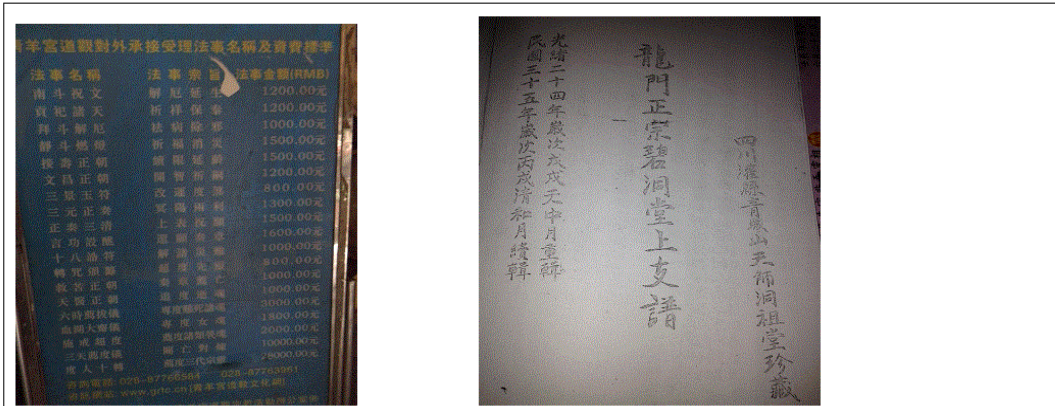 青羊宮道觀對外承接受理法事名稱及資費標準
法事名稱 法事宗旨 法事金額(RMB)
南斗祝文 解厄延生 1200.00元
貢祀諸天 祈祥保泰 1200.00元
拜斗解厄 祛病除邪 1000.00元
靜斗燃燈 祈福消災 1500.00元
正朝 延齡 1500.00元
文昌正朝 開智祈嗣 1200.00元
三景玉符 改運度煞 800.00元
三元正奏 冥陽兩利 1300.00元
正奏三清 上表祝願 1500.00元
言功設醮 還願奏章 1600.00元
十八誥符 解 災難 1000.00元
轉咒頒 超度先靈 800.00元
救苦正朝 1000.00元
天醫正朝 追度 1000.00元
六時薦拔儀 3000.00元
血湖大齋儀 專度女魂 1800.00元
施戒超度 薦度諸類 魂 2000.00元
三天薦度儀 10000.00元
度人十轉 薦度三代宗親
咨詢電話: 028-87766584 028-87763961
四川灌縣青城山天師洞祖堂珍藏
龍門正宗碧洞堂上支譜
光緒二十四年歲次戊戌天中月重輯
民國三十五年歲次丙戌清和月續輯